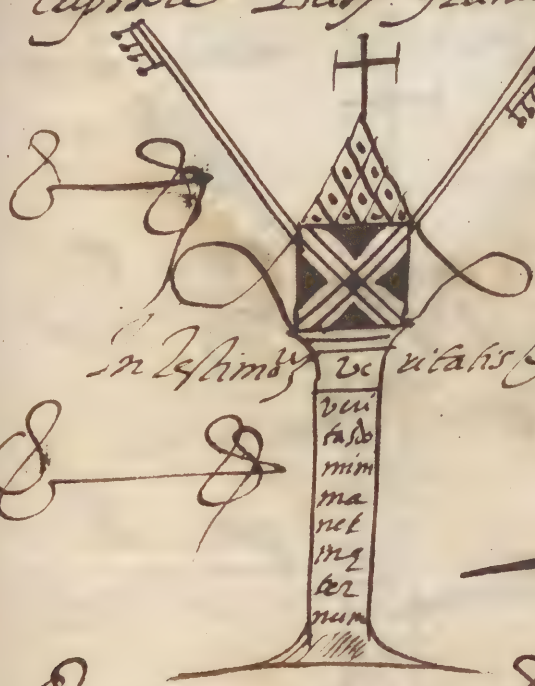 In testimo ve ritatis
veri
tasdo
mini
ma
net
in e
ter
num